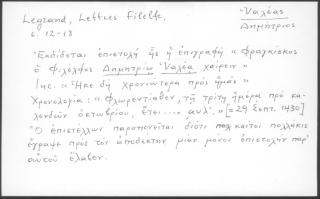 Legrand, Lettres Filelfe,
Ὑαλέας
σ. 12-13
Δημήτριος
Ἐκδίδεται ἐπιστολή ἧς ἡ ἐπιγραφή "Φραγκίσκος
ὁ Φιλέλφος Δημητρίῳ Ὑαλέᾳ χαίρειν"
Inc. "Ἧκε δή χρονιώτερα πρός ἡμᾶς"
Χρονολογία: "Φλωρεντιᾶθεν, τῇ τρίτῃ ἡμέρᾳ πρό κα-
λενδῶν ὀκτωβρίου, ἔτει... αυλ΄." [=29 Σεπτ. 1430]
Ὁ ἐπιστέλλων παραπονεῖται διότι καίτοι πολλάκις
ἔγραψε πρός τόν ἀποδέκτην μίαν μόνον ἐπιστολήν παρ'
αὐτοῦ ἔλαβεν.